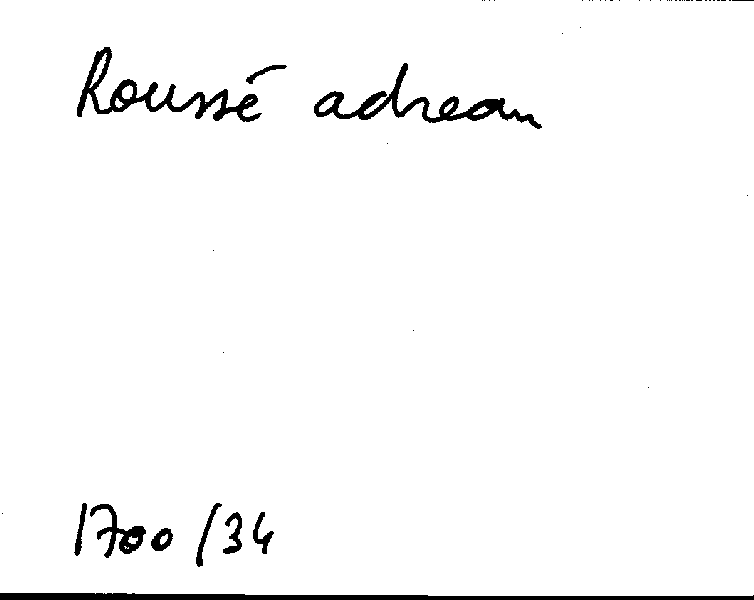 Roussé adrean
1700/34